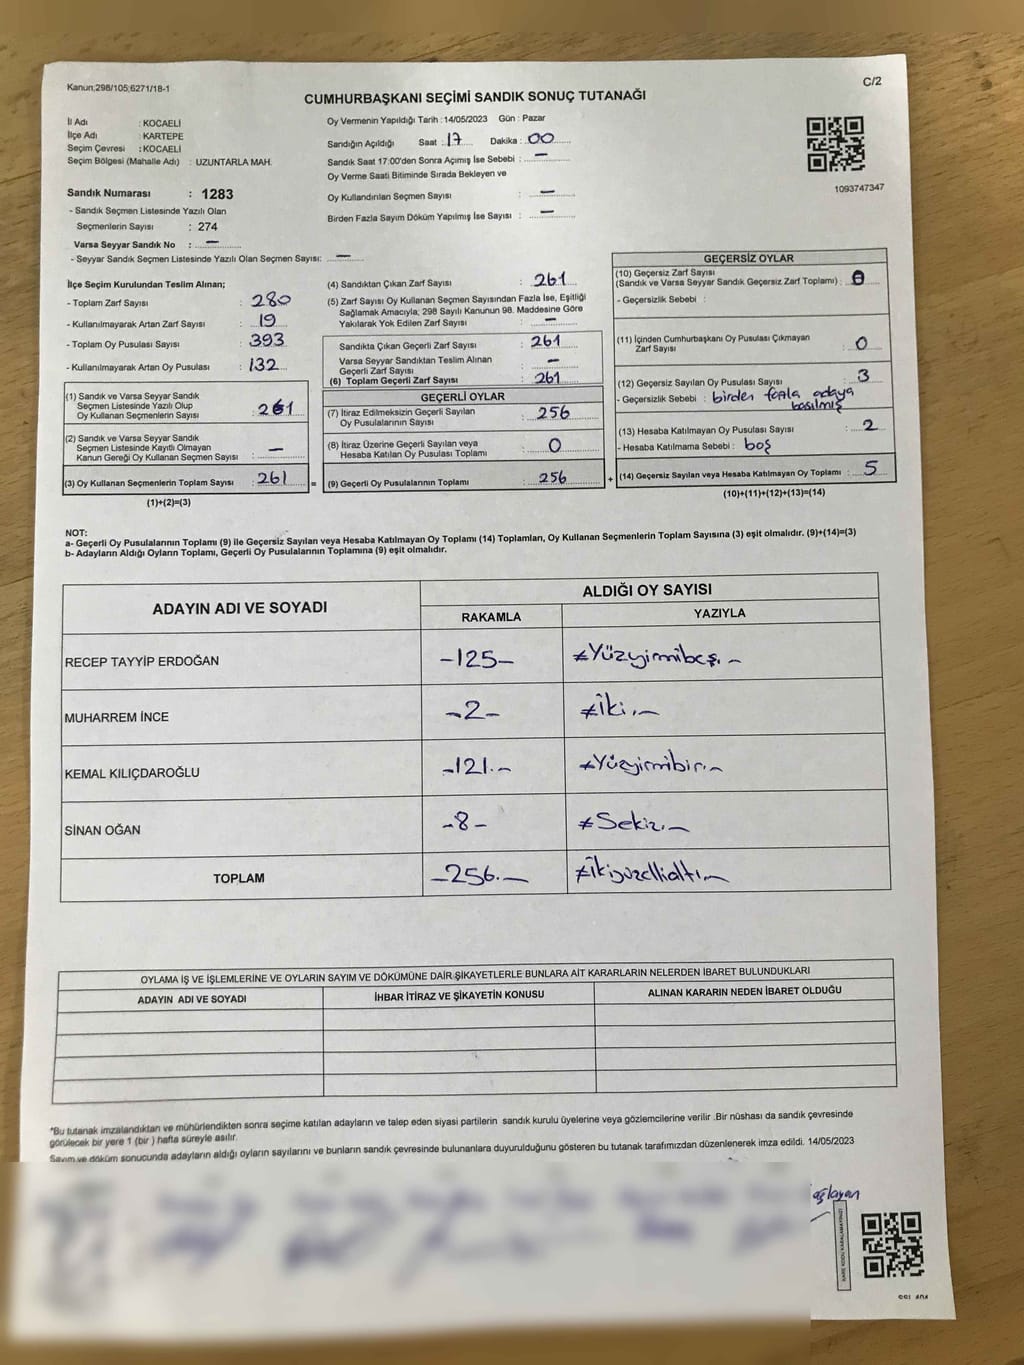 Kanun;298/105;6271/18-1
C/2
CUMHURBAŞKANI SEÇİMİ SANDIK SONUÇ TUTANAĞI
İl Adı : KOCAELİ
İlçe Adı : KARTEPE
Seçim Çevresi : KOCAELİ
Seçim Bölgesi (Mahalle Adı) : UZUNTARLA MAH.
Sandık Numarası : 1283
- Sandık Seçmen Listesinde Yazılı Olan
Seçmenlerin Sayısı : 274
Varsa Seyyar Sandık No : —
- Seyyar Sandık Seçmen Listesinde Yazılı Olan Seçmen Sayısı: —
Oy Vermenin Yapıldığı Tarih : 14/05/2023 Gün : Pazar
Sandığın Açıldığı Saat : 17 Dakika : 00
Sandık Saat 17:00'den Sonra Açımış İse Sebebi : —
Oy Verme Saati Bitiminde Sırada Bekleyen ve
Oy Kullandırılan Seçmen Sayısı : —
Birden Fazla Sayım Döküm Yapılmış İse Sayısı : —
1093747347
İlçe Seçim Kurulundan Teslim Alınan;
- Toplam Zarf Sayısı : 280
- Kullanılmayarak Artan Zarf Sayısı : 19
- Toplam Oy Pusulası Sayısı : 393
- Kullanılmayarak Artan Oy Pusulası : 132
(1) Sandık ve Varsa Seyyar Sandık
Seçmen Listesinde Yazılı Olup
Oy Kullanan Seçmenlerin Sayısı : 261
(2) Sandık ve Varsa Seyyar Sandık
Seçmen Listesinde Kayıtlı Olmayan
Kanun Gereği Oy Kullanan Seçmen Sayısı : —
(3) Oy Kullanan Seçmenlerin Toplam Sayısı : 261 =
(1)+(2)=(3)
(4) Sandıktan Çıkan Zarf Sayısı : 261
(5) Zarf Sayısı Oy Kullanan Seçmen Sayısından Fazla İse, Eşitliği
Sağlamak Amacıyla; 298 Sayılı Kanunun 98. Maddesine Göre
Yakılarak Yok Edilen Zarf Sayısı : —
Sandıkta Çıkan Geçerli Zarf Sayısı : 261
Varsa Seyyar Sandıktan Teslim Alınan
Geçerli Zarf Sayısı : —
(6) Toplam Geçerli Zarf Sayısı : 261
GEÇERLİ OYLAR
(7) İtiraz Edilmeksizin Geçerli Sayılan
Oy Pusulalarının Sayısı : 256
(8) İtiraz Üzerine Geçerli Sayılan veya
Hesaba Katılan Oy Pusulası Toplamı : 0
(9) Geçerli Oy Pusulalarının Toplamı : 256 +
GEÇERSİZ OYLAR
(10) Geçersiz Zarf Sayısı
(Sandık ve Varsa Seyyar Sandık Geçersiz Zarf Toplamı) : 0
- Geçersizlik Sebebi :
(11) İçinden Cumhurbaşkanı Oy Pusulası Çıkmayan
Zarf Sayısı : 0
(12) Geçersiz Sayılan Oy Pusulası Sayısı : 3
- Geçersizlik Sebebi : birden fazla adaya
basılmış
(13) Hesaba Katılmayan Oy Pusulası Sayısı : 2
- Hesaba Katılmama Sebebi : boş
(14) Geçersiz Sayılan veya Hesaba Katılmayan Oy Toplamı : 5
(10)+(11)+(12)+(13)=(14)
NOT:
a- Geçerli Oy Pusulalarının Toplamı (9) ile Geçersiz Sayılan veya Hesaba Katılmayan Oy Toplamı (14) Toplamları, Oy Kullanan Seçmenlerin Toplam Sayısına (3) eşit olmalıdır. (9)+(14)=(3)
b- Adayların Aldığı Oyların Toplamı, Geçerli Oy Pusulalarının Toplamına (9) eşit olmalıdır.
ADAYIN ADI VE SOYADI
ALDIĞI OY SAYISI
RAKAMLA YAZIYLA
RECEP TAYYİP ERDOĞAN -125- ≠Yüzyirmibeş.-
MUHARREM İNCE -2- ≠İki.-
KEMAL KILIÇDAROĞLU -121.- ≠Yüzyirmibir.-
SİNAN OĞAN -8- ≠Sekiz.-
TOPLAM -256.- ≠İkiyüzellialtı.-
OYLAMA İŞ VE İŞLEMLERİNE VE OYLARIN SAYIM VE DÖKÜMÜNE DAİR ŞİKAYETLERLE BUNLARA AİT KARARLARIN NELERDEN İBARET BULUNDUKLARI
ADAYIN ADI VE SOYADI İHBAR İTİRAZ VE ŞİKAYETİN KONUSU ALINAN KARARIN NEDEN İBARET OLDUĞU
*Bu tutanak imzalandıktan ve mühürlendikten sonra seçime katılan adayların ve talep eden siyasi partilerin sandık kurulu üyelerine veya gözlemcilerine verilir .Bir nüshası da sandık çevresinde
görülecek bir yere 1 (bir ) hafta süreyle asılır.
Sayım ve döküm sonucunda adayların aldığı oyların sayılarını ve bunların sandık çevresinde bulunanlara duyurulduğunu gösteren bu tutanak tarafımızdan düzenlenerek imza edildi. 14/05/2023
KARE KODU KARALAMAYINIZ!